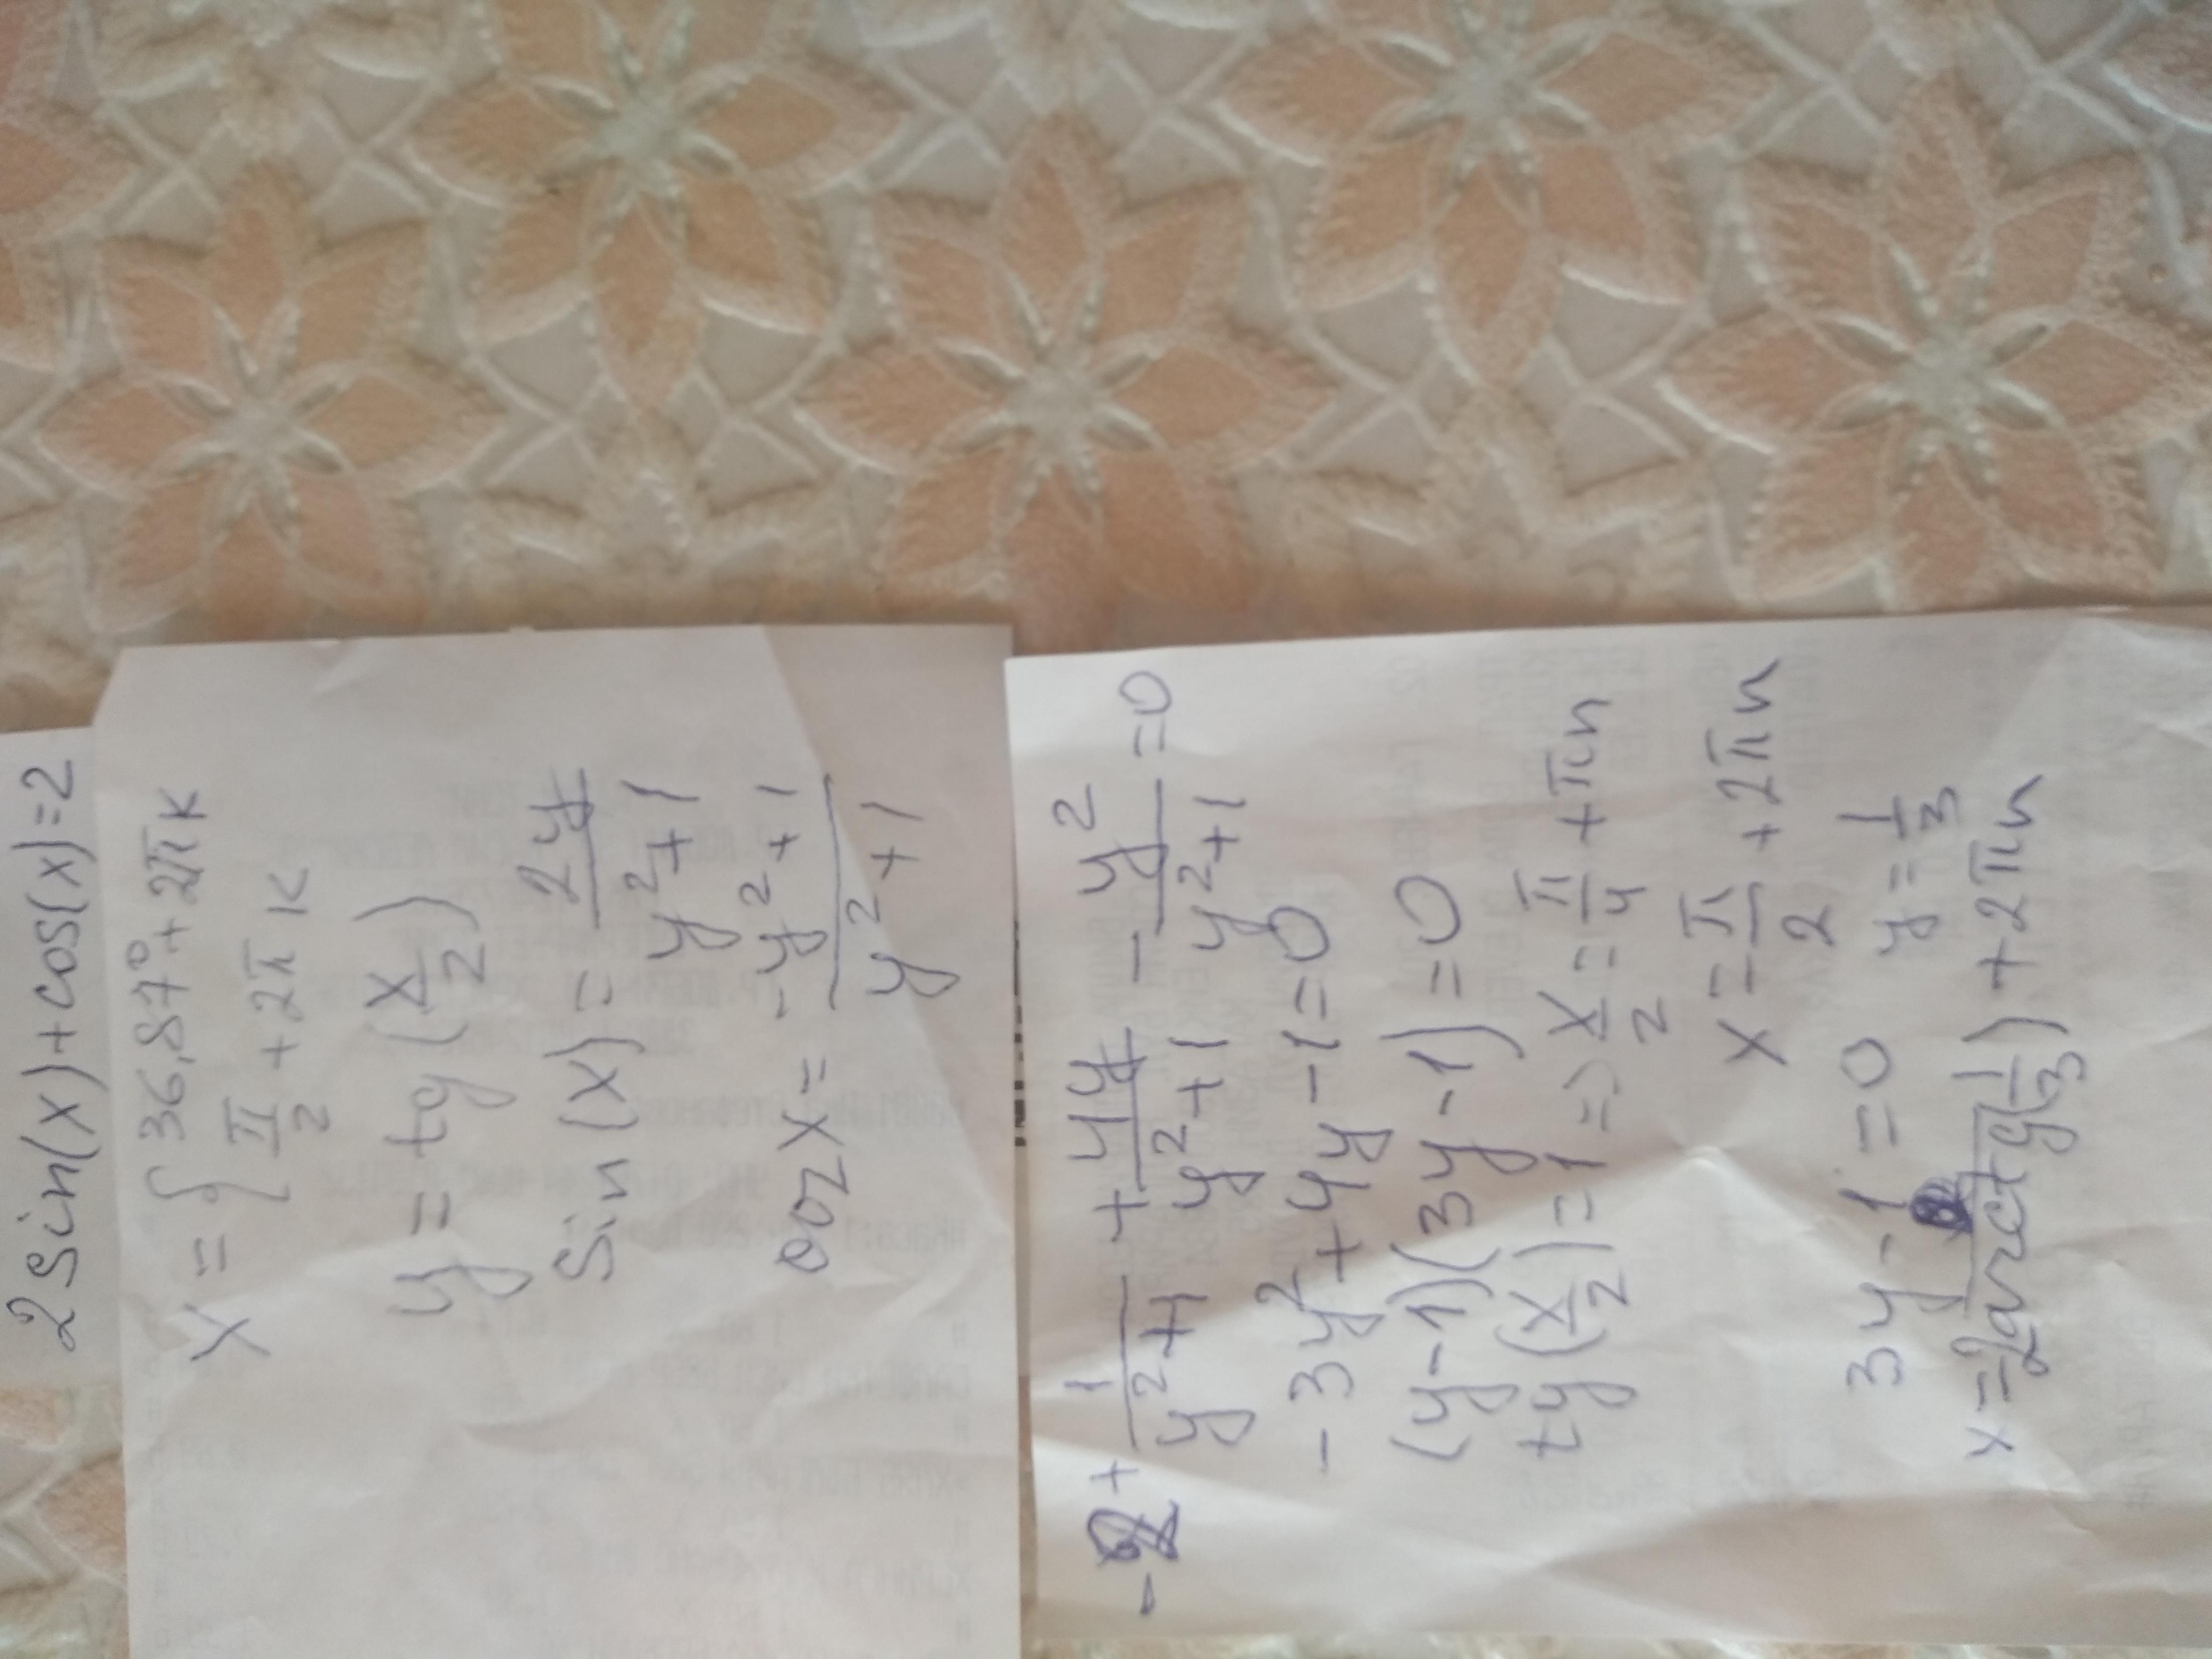 2 sin(x)+cos(x)=2
x = { 36,87°+2πk
π/2 + 2πk
y = tg (x/2)
sin (x) = 2y/(y²+1)
cos x = (-y²+1)/(y²+1)
-2 + 1/(y²+1) + 4y/(y²+1) - y²/(y²+1) =0
-3y²+4y-1=0
(y-1)(3y-1)=0
tg(x/2)=1 => x/2 = π/4 + πn
x = π/2 + 2πn
3y-1=0 y=1/3
x=2arctg(1/3)+2πn